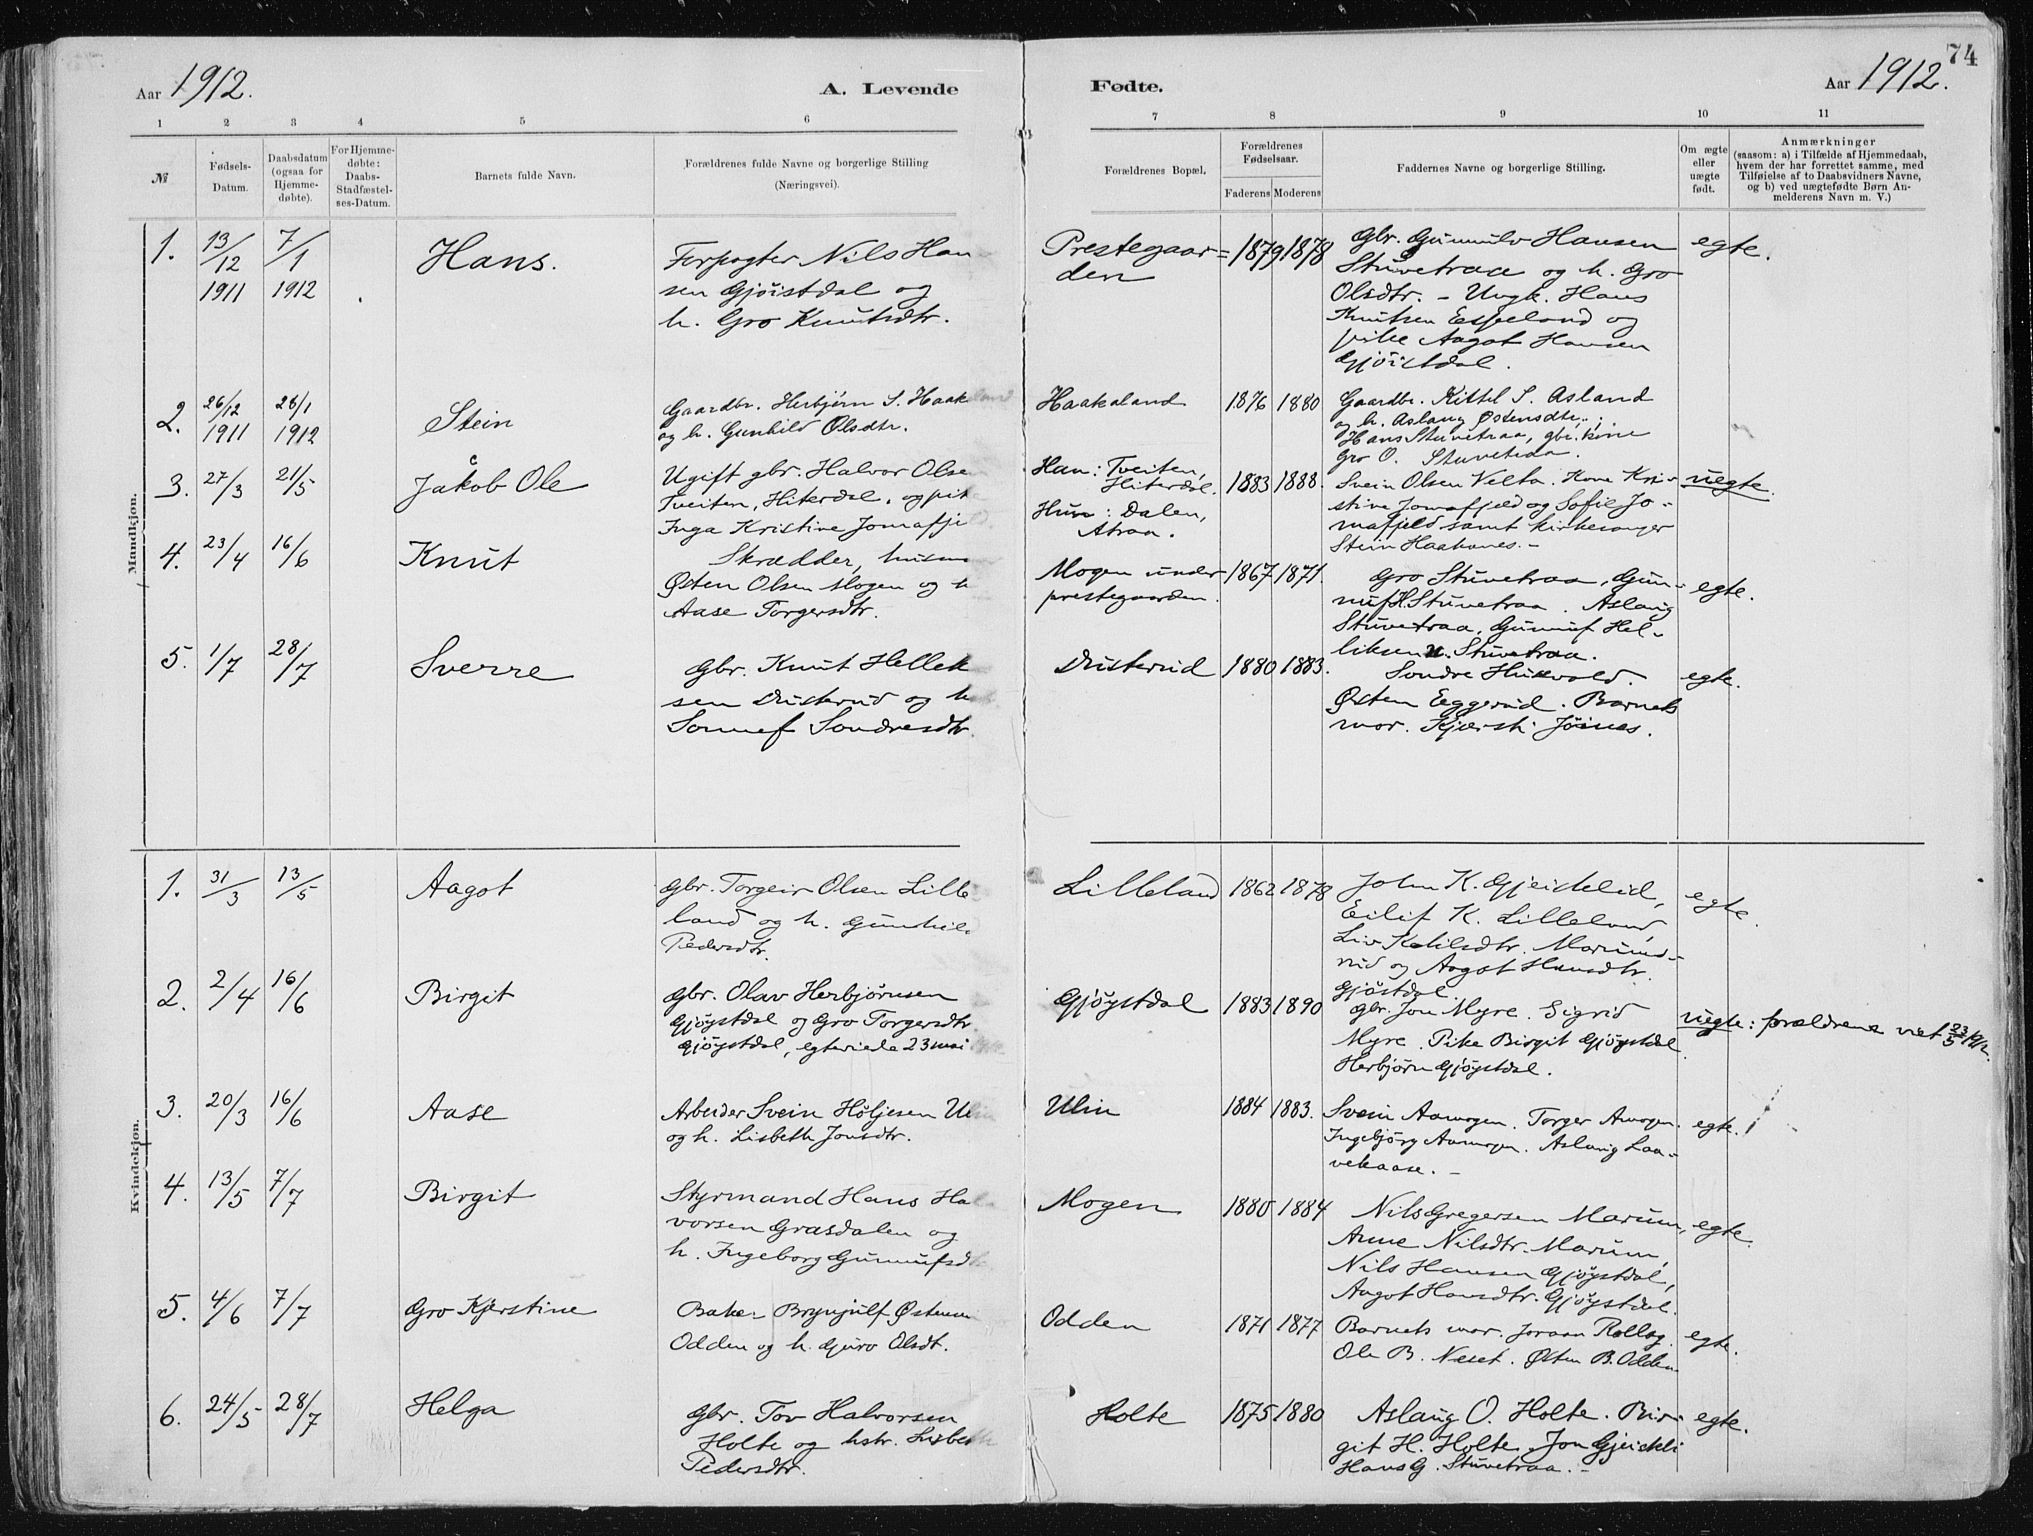 74
Aar 1912.
A. Levende
Fødte.
Aar 1912.
1 2 3 4 5 6 7 8 9 10 11
№
Fødsels-
Datum.
Daabsdatum
(ogsaa for
Hjemme-
døbte).
For Hjemme-
døbte:
Daabs-
Stadfæstel-
ses-Datum.
Barnets fulde Navn.
Forældrenes fulde Navne og borgerlige Stilling
(Næringsvei).
Forældrenes Bopæl.
Forældrenes
Fødselsaar.
Faderens Moderens
Faddernes Navne og borgerlige Stilling.
Om ægte
eller
uægte
født.
Anmærkninger
(saasom: a) i Tilfælde af Hjemmedaab,
hvem der har forrettet samme, med
Tilføielse af to Daabsvidners Navne,
og b) ved uægtefødte Børn An-
melderens Navn m. V.)
Mandkjøn.
1.
13/12
1911
7/1
1912
Hans.
Forpagter Nils Han
sen Gjöistdal og
h. Gro Knutsdtr.
Prestegaar=
den
1879 1878
Gbr. Gunnulv Hansen
Stuvetraa og h. Gro
Olsdtr. – Ungk. Hans
Knutsen Espeland og
pike Aagot Hansen
Gjöistdal.
egte.
2.
26/12
1911
28/1
1912
Stein
Gaardbr. Herbjörn S. Haakaland
og h. Gunhild Olsdtr.
Haakaland
1876 1880
Gaardbr. Kittel S. Asland
og h. Aslaug Østensdtr.;
Hans Stuvetraa, gbr.kone
Gro O. Stuvetraa.
3.
27/3
21/5
Jakob Ole
Ugift gbr. Halvor Olse
Tveiten, Hiterdal. og pik
Inga Kristine Jomafje
Han: Tveiten,
Hiterdal.
Hun: Dalen,
Atraa.
1883 1888.
Svein Olsen Velta. Kone Kri-
stine Jomafjeld og Sofie Jo-
mafjeld samt kirkesanger
Stein Haakanes. –
uegte.
4.
23/4
16/6
Knut
Skrædder, husm
Østen Olsen Mogen og h
Aase Torgersdtr.
Mogen under
prestegaarden.
1867 1871.
Gro Stuvetraa, Gun-
nuf H. Stuvetraa. Aslaug
Stuvetraa, Gunnuf Hel-
liksen n. Stuvetraa.
egte.
5.
1/7
28/7
Sverre
Gbr. Knut Hellek
sen Dusterud og h
Sonnef Sondresdtr.
Dusterud
1880 1883.
Sondre Husevold.
Østen Eggerud. Barnets
mor. Kjersti Jöines.
egte.
Kvindekjøn.
1.
31/3
13/5
Aagot
Gbr. Torgeir Olsen Lille
land og h. Gunhild
Pedersdtr.
Lilleland
1862 1878
John K. Gjeiskelid,
Eilif K. Lilleland
Liv Ketilsdtr. Marum-
rud og Aagot Hansdtr.
Gjöstdal.
egte
2.
2/4
16/6
Birgit
Gbr. Olav Herbjörnsen
Gjöystdal og Gro Torgersdtr
Gjöystdal, egteviede 23 mai
Gjöystdal
1883 1890
Gbr. Jon Myre. Sigrid
Myre. Pike Birgit Gjöystdal
Herbjörn Gjöystdal.
uegte: forældrene viet 23/5 1912.
3.
20/3
16/6
Aase
Arbeider Svein Høljesen Ulin
og h. Lisbeth Jonsdtr.
Ulin
1884 1883.
Svein Aamogen. Torger Amogen.
Ingebjörg Aamogen. Aslaug Laa-
vekaase. –
egte.
4.
13/5
7/7
Birgit
Styrmand Hans Hal
vorsen Grasdalen og
h. Ingeborg Gunnufsdtr
Mogen
1880 1884
Nils Gregersen Marum,
Anne Nilsdtr. Marum,
Nils Hansen Gjöystdal,
Aagot Hansdtr. Gjöystdal.
egte.
5.
4/6
7/7
Gro Kjerstine
Baker Brynjulf Østensen
Odden og h. Guro Olsdt.
Odden
1871 1877
Barnets mor. Joraan Rollag.
Ole B. Neset. Østen B. Odden
egte.
6.
24/5
28/7
Helga
Gbr. Tov Halvorsen
Holte og hstr. Lisbeth
Pedersdtr.
Holte
1875 1880
Aslaug O. Holte. Bir-
git H. Holte. Jon Gjeiskli
Hans G. Stuvetraa. –
egte.